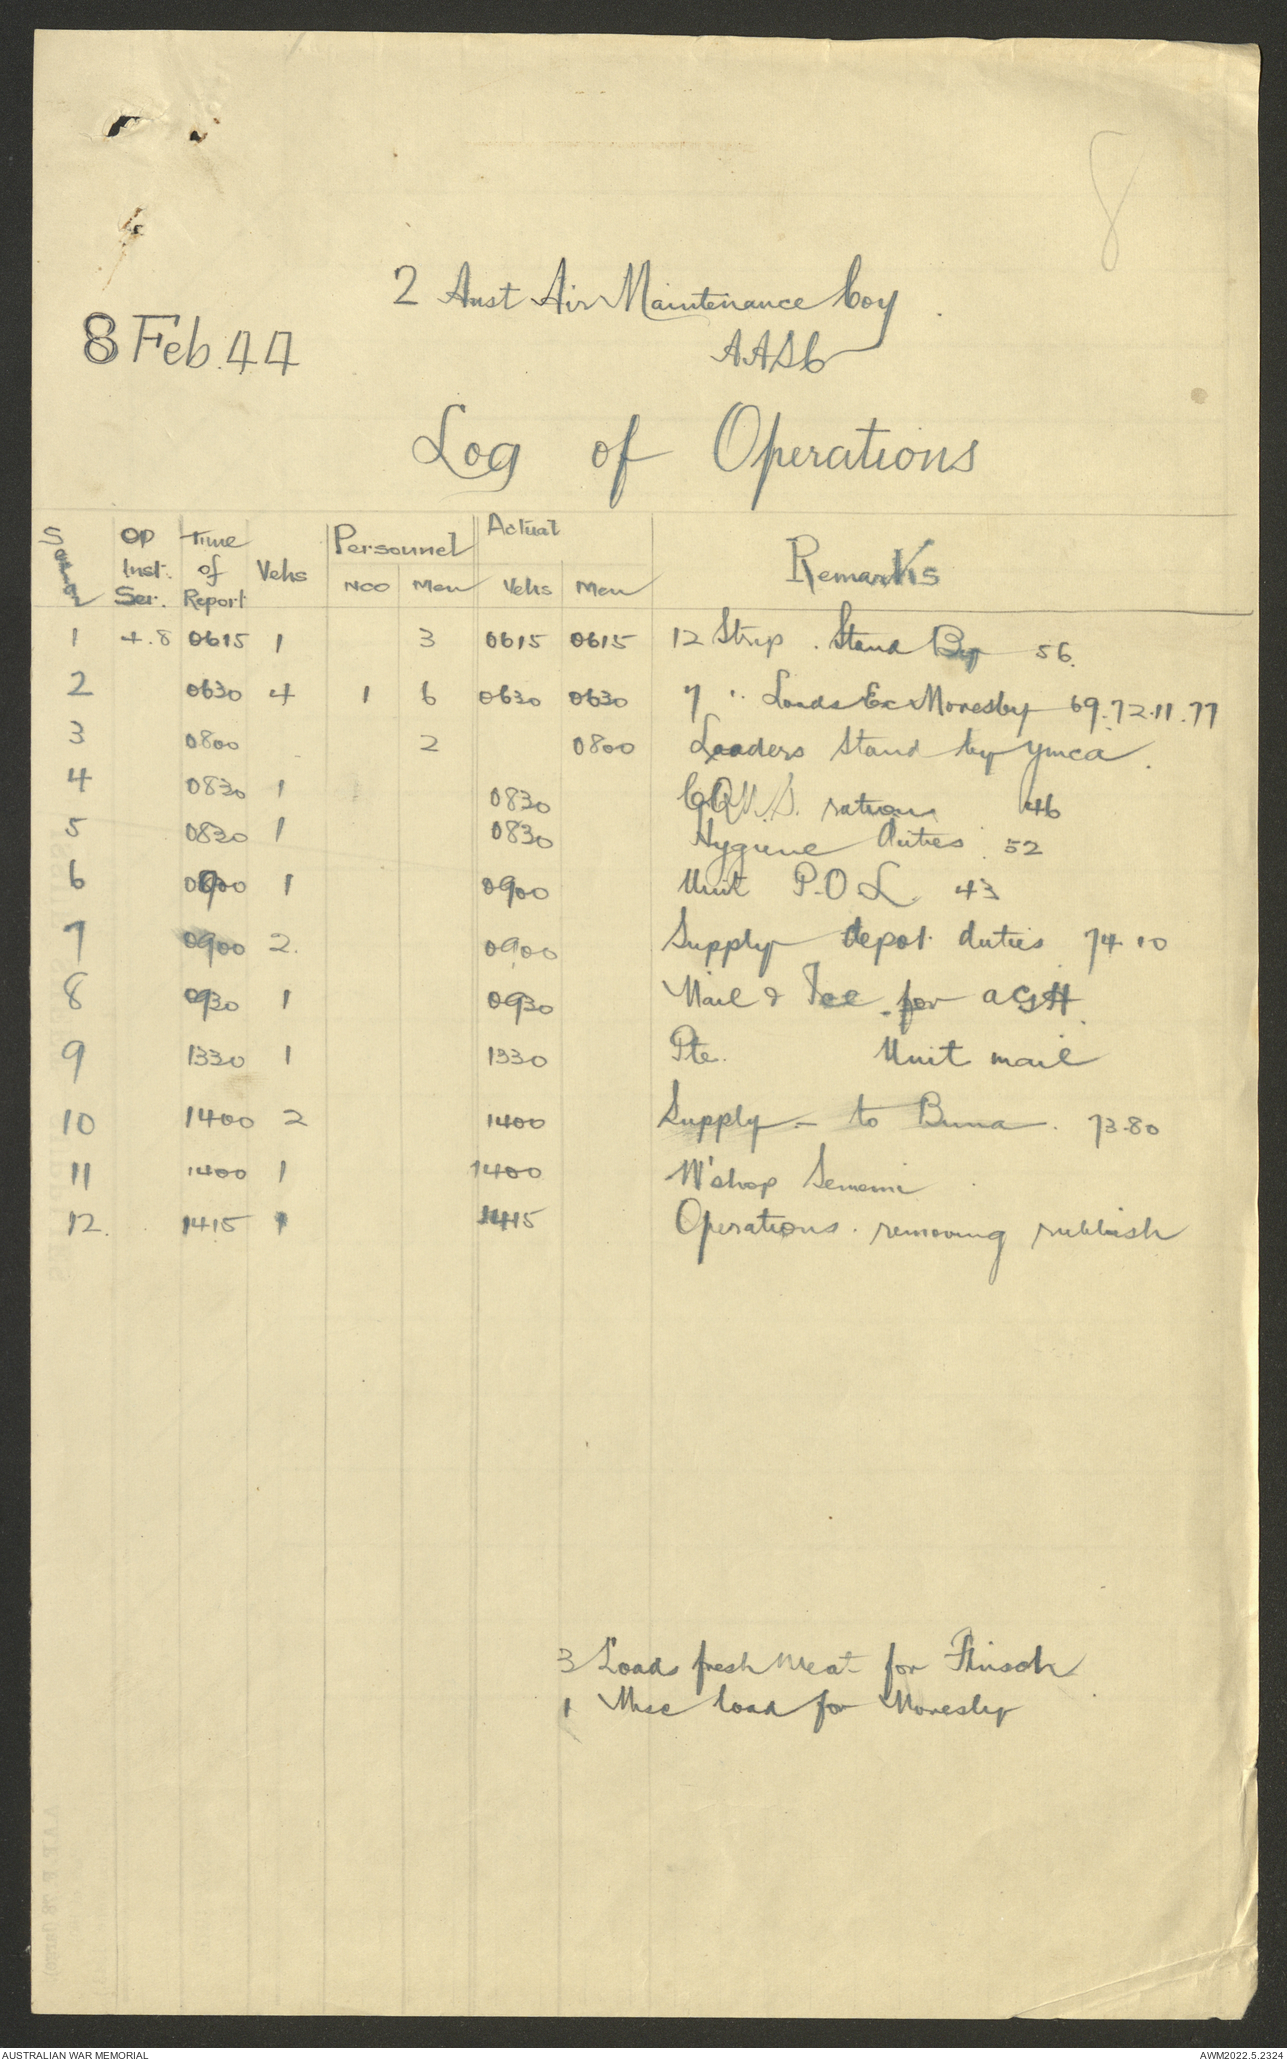 8
2 Aust Air Maintenance Coy
8 Feb. 44
AASC
Log of Operations
Serial Op Inst. Ser. Time of Report Vehs Personnel NCO Men Actual Vehs Men Remarks
1 4.8 0615 1 3 0615 0615 12 Strip. Stand By 56.
2 0630 4 1 6 0630 0630 7 " Loads Ex Moresby 69.72.11.77
3 0800 2 0800 Loaders stand by YMCA.
4 0830 1 0830 CQMS. rations 46
5 0830 1 0830 Hygiene Duties. 52
6 0900 1 0900 Unit P.O.L. 43
7 0900 2. 0900 Supply depot duties 74 10
8 0930 1 0930 Mail & Ice for AGH.
9 1330 1 1330 Pte. Unit mail
10 1400 2 1400 Supply - to Buna. 73.80
11 1400 1 1400 W'shop Sememi
12. 1415 1 1415 Operations. removing rubbish
3 Loads fresh Meat for Finsch
1 Misc load for Moresby
AUSTRALIAN WAR MEMORIAL
AWM2022.5.2324